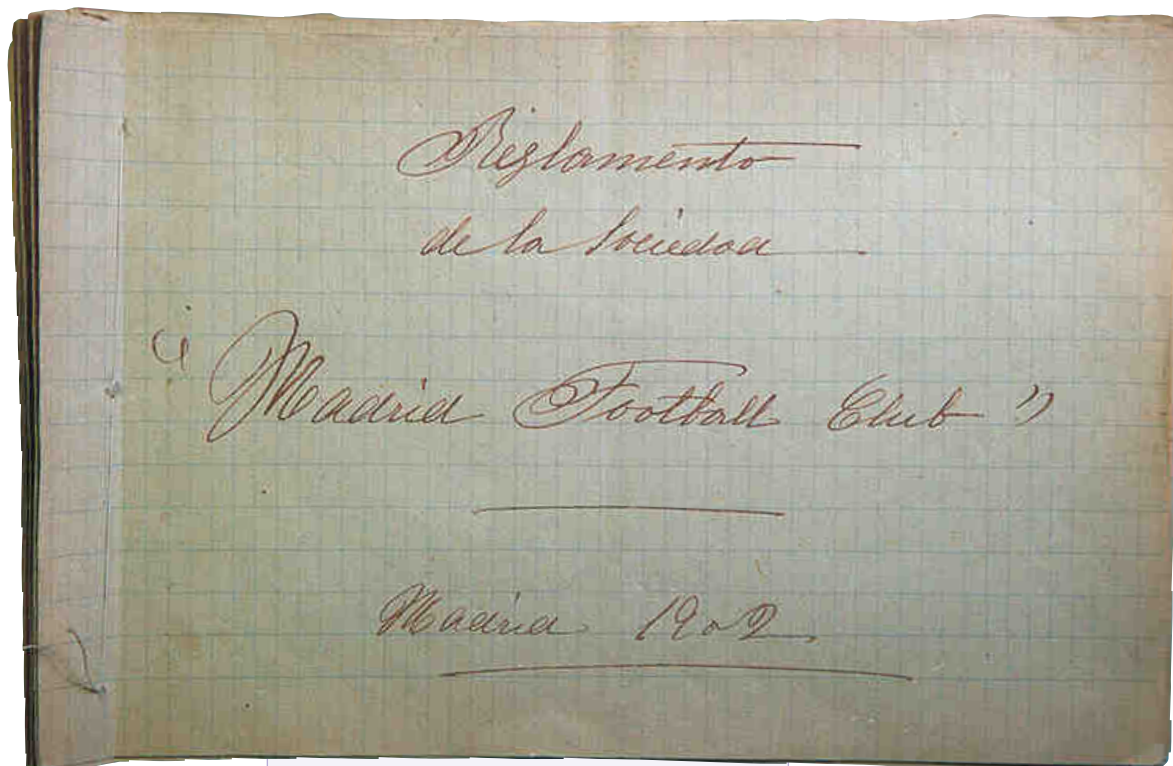 Reglamento
de la Sociedad
" Madrid Football Club "
Madrid 1902